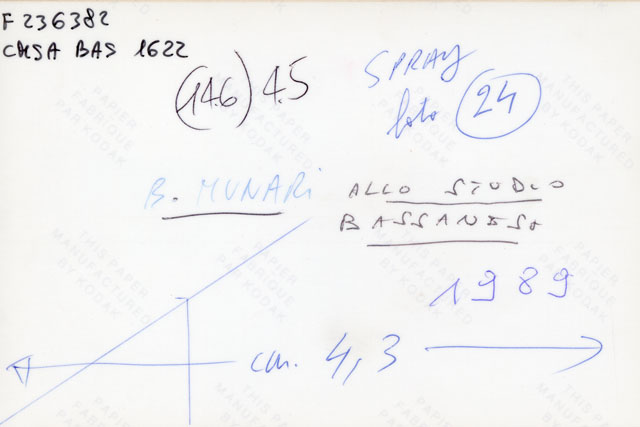 F 236382
CMSA BAS 1622
(146) 45
SPRAY
foto 24
B. MUNARI ALLO STUDIO
BASSANESE
1989
cm. 4,3
THIS PAPER
MANUFACTURED
BY KODAK
PAPIER
FABRIQUE
PAR KODAK